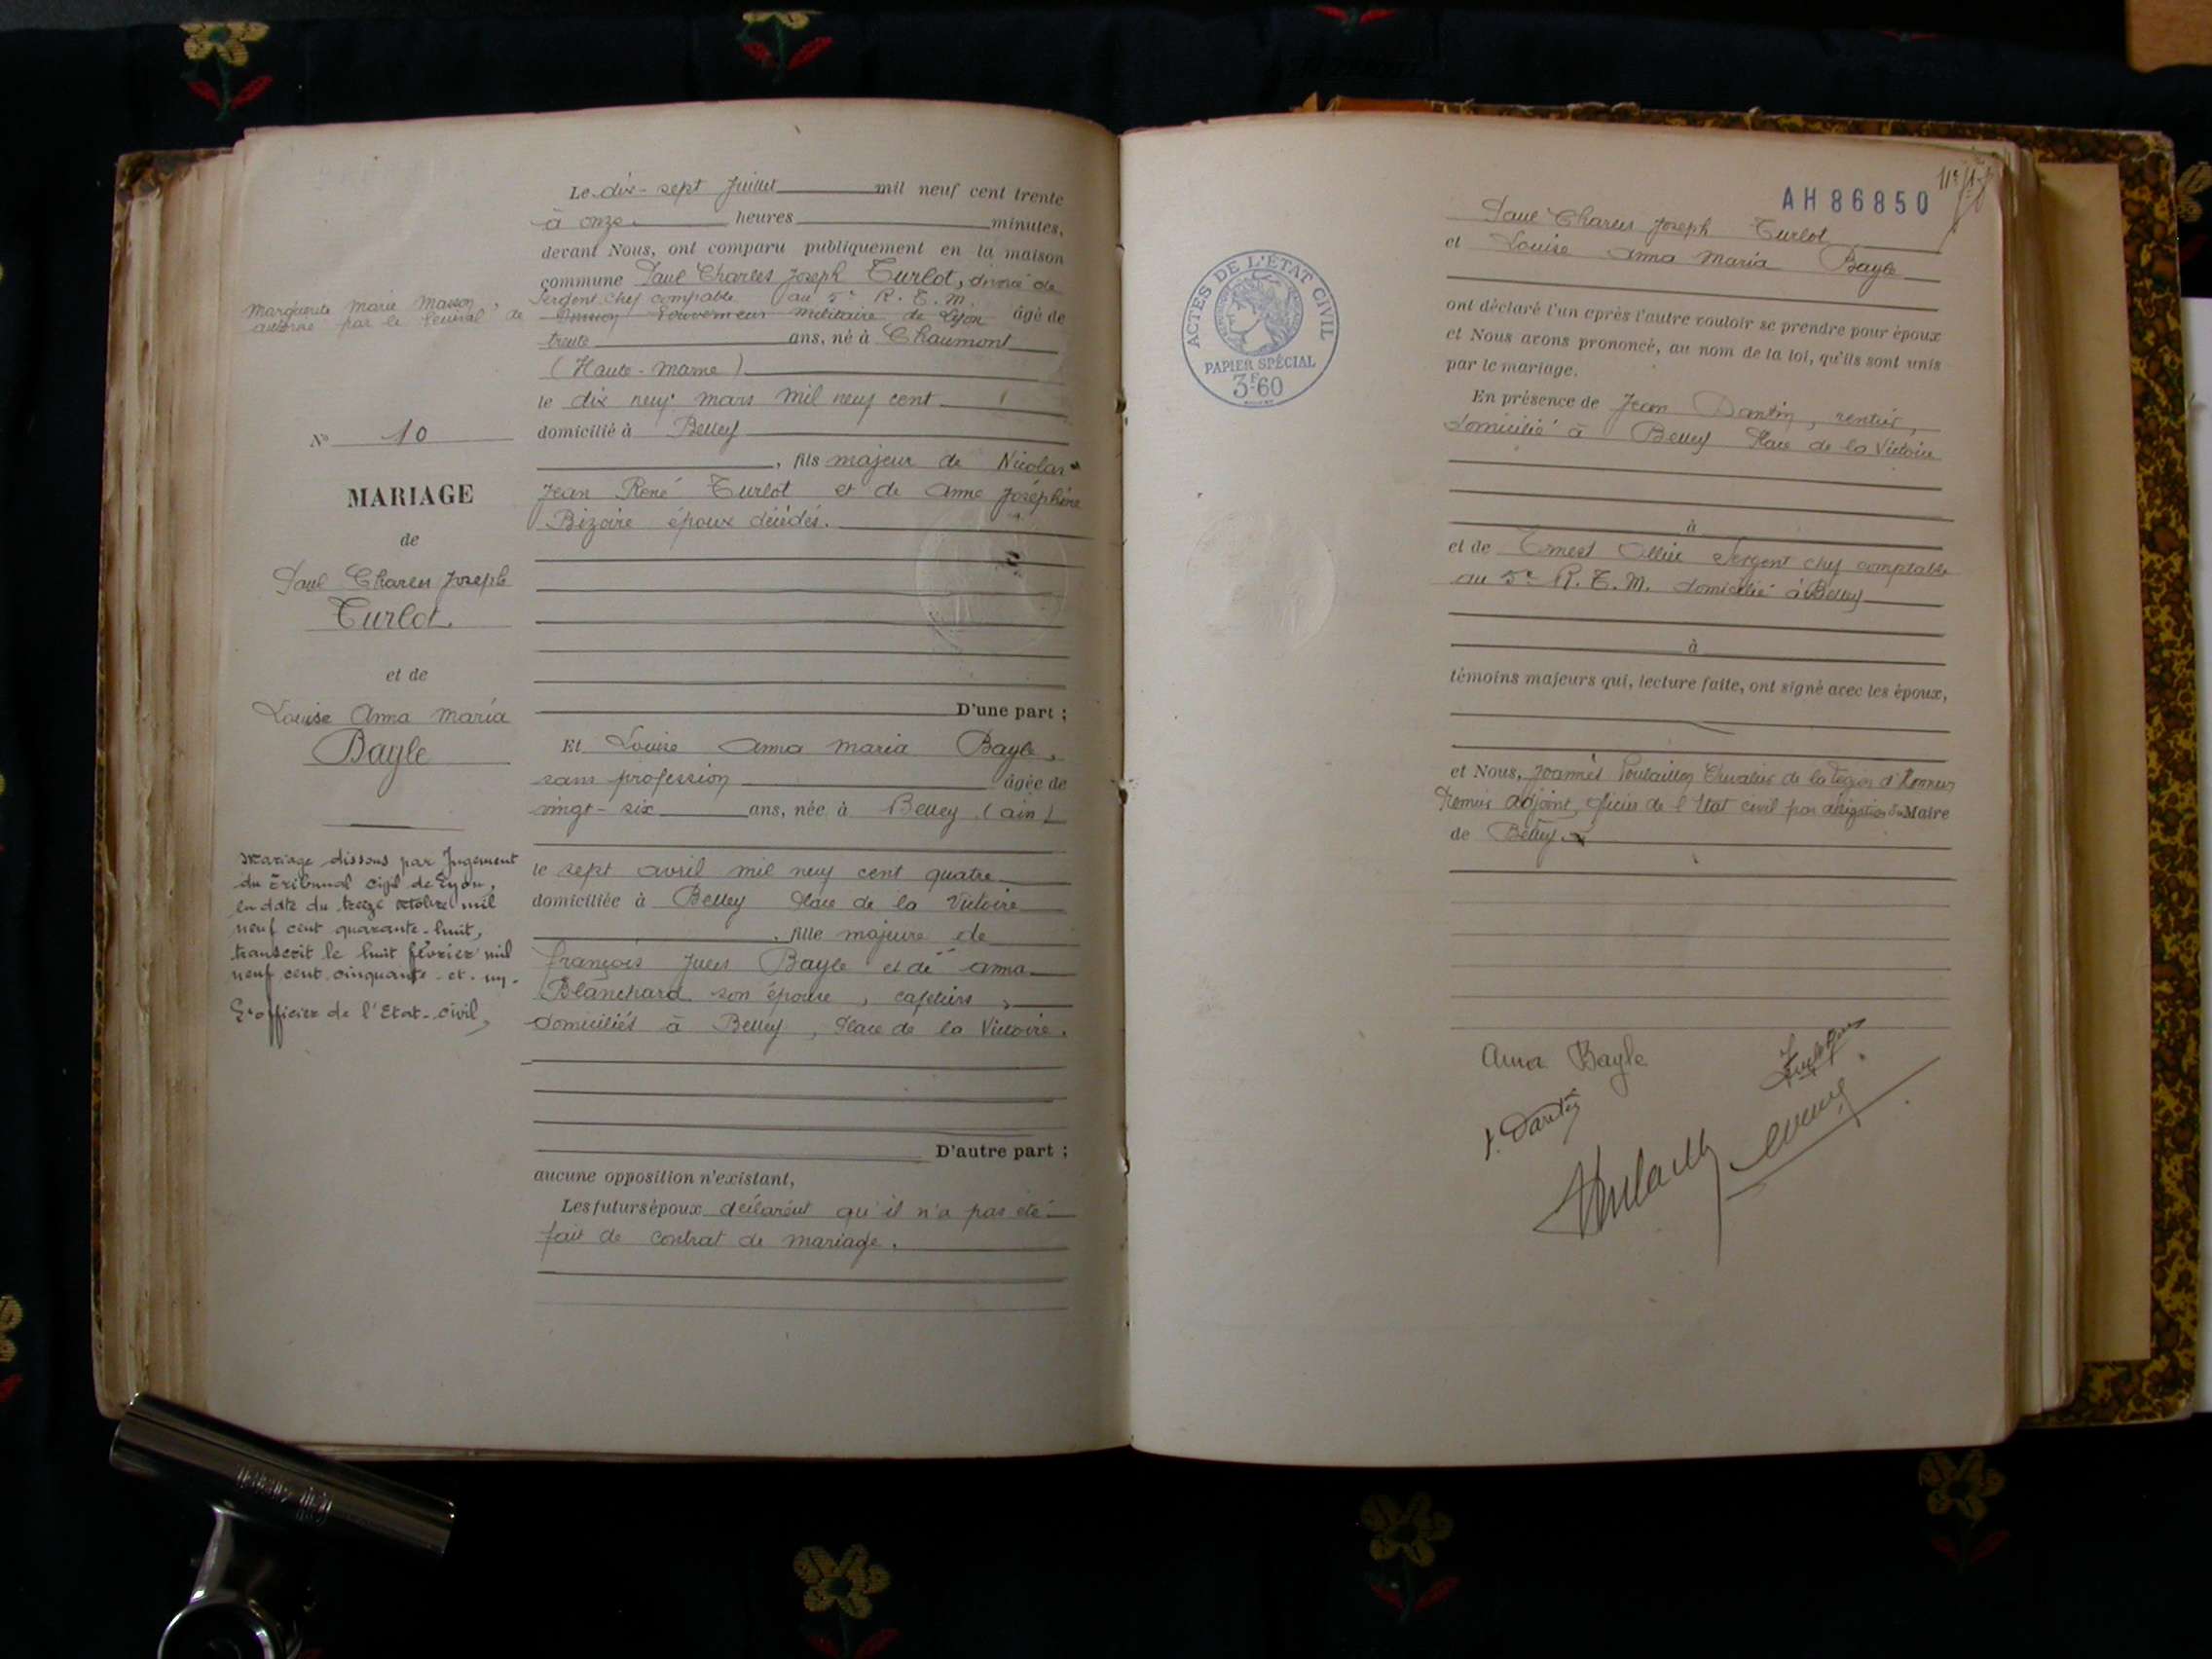 Le dix-sept Juillet mil neuf cent trente
à onze heures minutes,
devant Nous, ont comparu publiquement en la maison
commune Paul Charles Joseph Turlot, divorcé de
Marguerite Marie Masson,
autorisé par le Général de
Sergent chef comptable au 5e R.T.M.
Gouverneur Militaire de Lyon âgé de
trente ans, né à Chaumont
(Haute-Marne)
le dix neuf mars mil neuf cent
domicilié à Belley
, fils majeur de Nicolas
Jean René Turlot et de Anne Joséphine
Bizoire époux décédés.
D'une part ;
Et Louise Anna Maria Bayle,
sans profession âgée de
vingt-six ans, née à Belley (ain)
le sept avril mil neuf cent quatre
domiciliée à Belley Place de la Victoire
, fille majeure de
François Jules Bayle et de Anna
Blanchard son épouse, cafetiers,
domiciliés à Belley, Place de la Victoire.
D'autre part ;
aucune opposition n'existant,
Les futurs époux déclarent qu'il n'a pas été
fait de contrat de mariage.
No 10
MARIAGE
de
Paul Charles Joseph
Turlot
et de
Louise Anna Maria
Bayle
Mariage dissous par Jugement
du Tribunal civil de Lyon,
en date du treize octobre mil
neuf cent quarante-huit,
transcrit le huit février mil
neuf cent cinquante-et-un.
L'officier de l'Etat-civil,
ACTES DE L'ÉTAT CIVIL
PAPIER SPÉCIAL
3F60
AH 86850
Paul Charles Joseph Turlot
et Louise Anna Maria Bayle
ont déclaré l'un après l'autre vouloir se prendre pour époux
et Nous avons prononcé, au nom de la loi, qu'ils sont unis
par le mariage.
En présence de Jean Dantin, rentier,
domicilié à Belley Place de la Victoire
à
et de Ernest Ollier Sergent chef comptable
au 5e R.T.M. domicilié à Belley
à
témoins majeurs qui, lecture faite, ont signé avec les époux,
et Nous, Joannès Poulaillon Chevalier de la Légion d'Honneur
Premier adjoint, officier de l'Etat civil par délégation du Maire
de Belley
Anna Bayle
J. Dantin